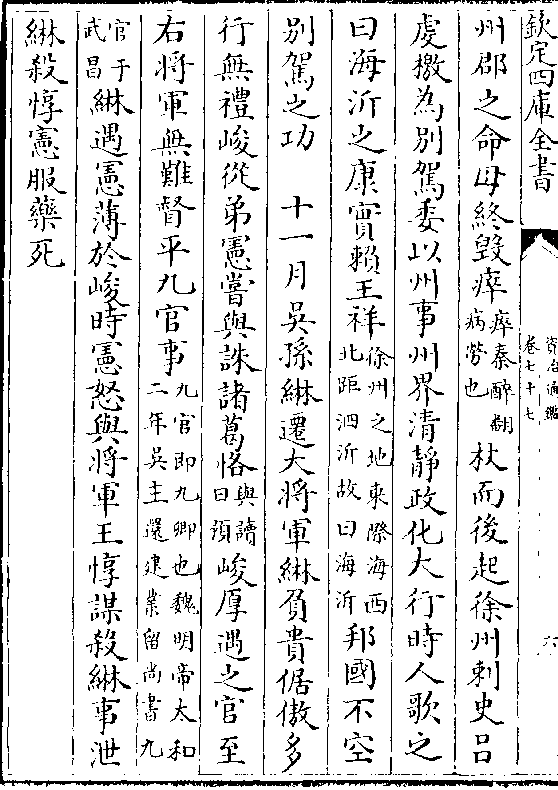 欽定四庫全書
資治通鑑
卷七十七
六
州郡之命母終毁瘁瘁秦醉翻
病勞也杖而後起徐州刺史吕
虔檄為别駕委以州事州界清靜政化大行時人歌之
曰海沂之康實賴王祥徐州之地東際海西
北距泗沂故曰海沂邦國不空
别駕之功　十一月吴孫綝遷大將軍綝負貴倨傲多
行無禮峻從弟憲嘗與誅諸葛恪與讀
曰預峻厚遇之官至
右將軍無難督平九官事九官即九卿也魏明帝太和
二年吴主還建業留尚書九
官于
武昌綝遇憲薄於峻時憲怒與將軍王惇謀殺綝事泄
綝殺惇憲服藥死